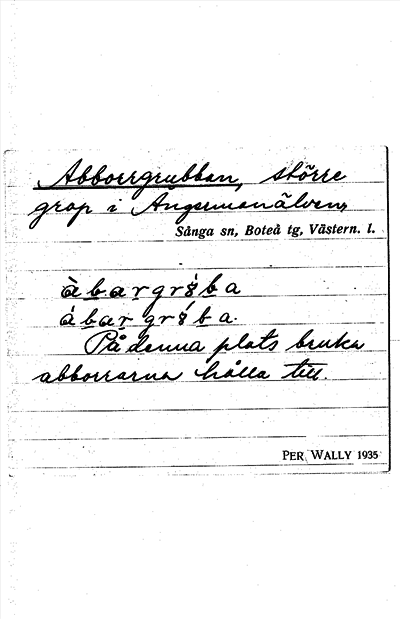 Abborrgrubban, större
grop i Ångermanälven,
Sånga sn, Boteå tg, Västern. l.
àbargrɞ́ba
ábargrɞ́ba.
På denna plats bruka
abborrarna hålla till.
PER WALLY 1935